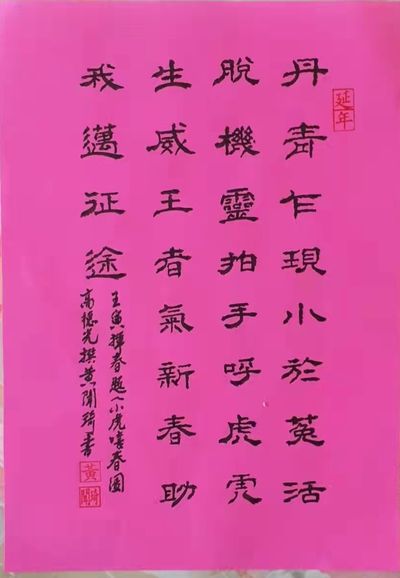 延年
丹青乍現小於菟活
脫機靈拍手呼虎虎
生威王者氣新春助
我邁征途
壬寅揮春題小虎嘻春圖
高德光撰黃開琦書
黃